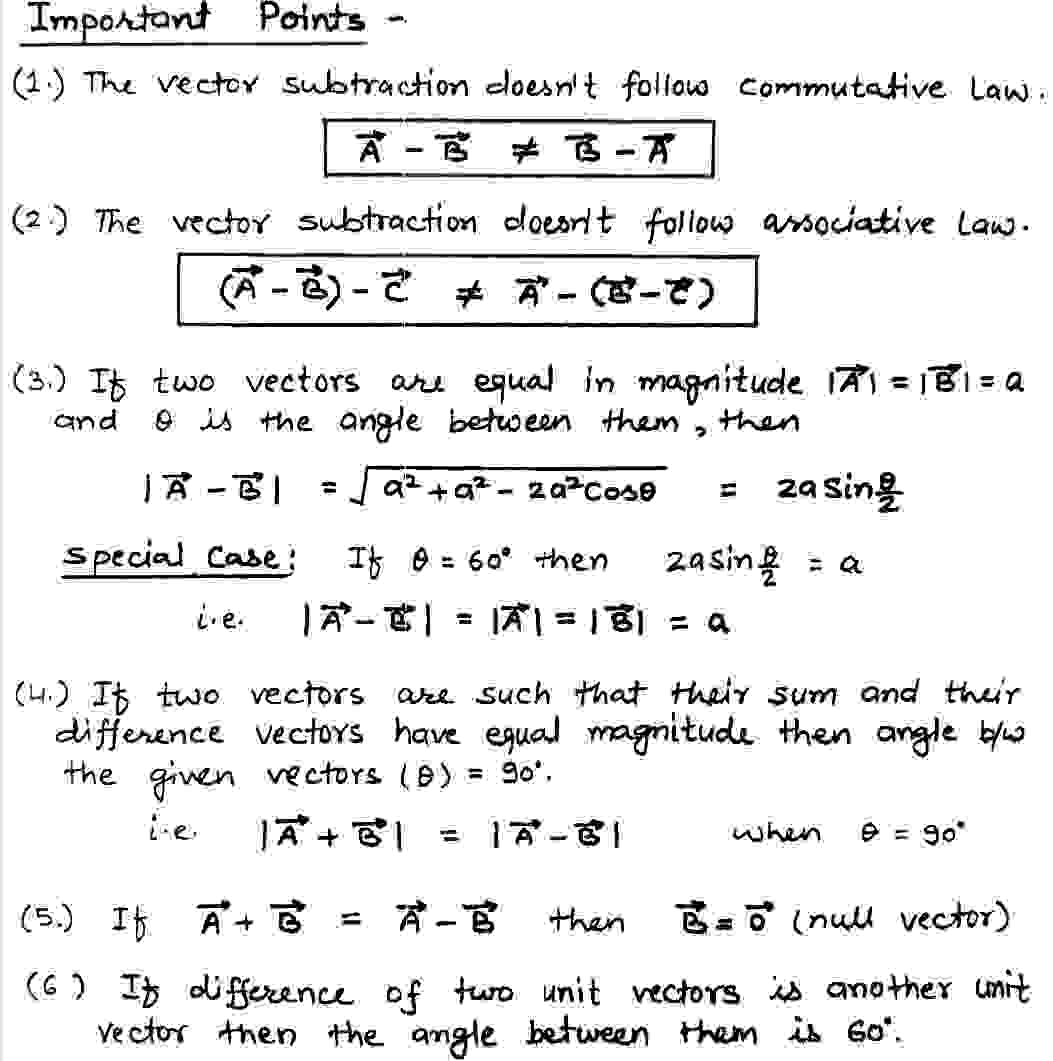 Important Points -
(1.) The vector subtraction doesn't follow commutative Law.
A⃗ - B⃗ ≠ B⃗ - A⃗
(2.) The vector subtraction doesn't follow associative Law.
(A⃗ - B⃗) - C⃗ ≠ A⃗ - (B⃗ - C⃗)
(3.) If two vectors are equal in magnitude |A⃗| = |B⃗| = a
and θ is the angle between them, then
|A⃗ - B⃗| = √(a² + a² - 2a²Cosθ) = 2a Sin θ/2
Special Case: If θ = 60° then 2a Sin θ/2 = a
i.e. |A⃗ - B⃗| = |A⃗| = |B⃗| = a
(4.) If two vectors are such that their sum and their
difference vectors have equal magnitude then angle b/w
the given vectors (θ) = 90°.
i.e. |A⃗ + B⃗| = |A⃗ - B⃗| when θ = 90°
(5.) If A⃗ + B⃗ = A⃗ - B⃗ then B⃗ = 0⃗ (null vector)
(6) If difference of two unit vectors is another unit
vector then the angle between them is 60°.